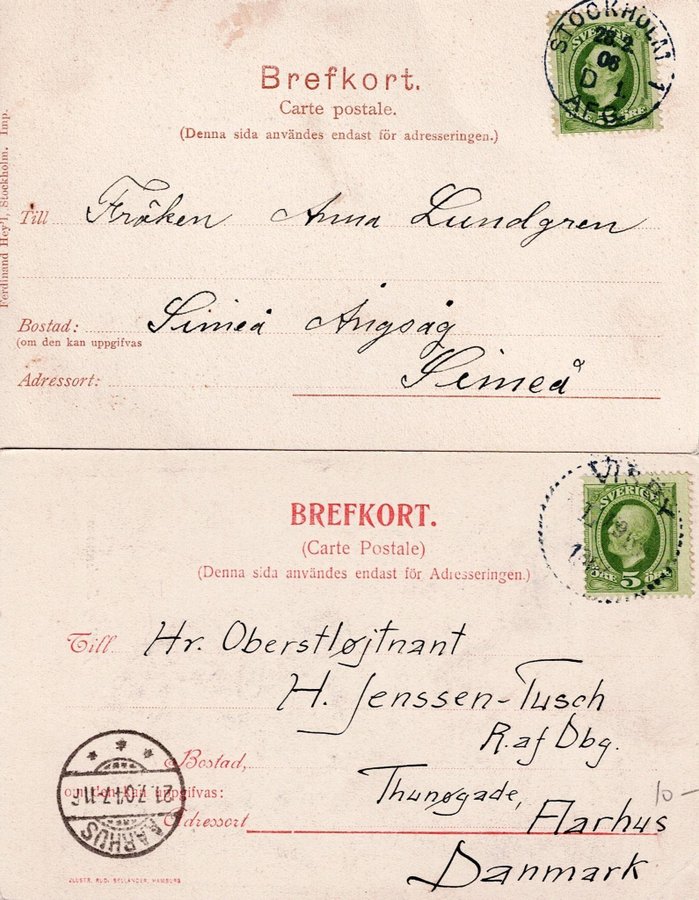 STOCKHOLM 1
28.2
06
D 1
AFG.
SVERIGE
Brefkort.
Carte postale.
(Denna sida användes endast för adresseringen.)
Ferdinand Hey'l, Stockholm. Imp.
Till Fröken Anna Lundgren
Bostad: Simeå Ångsåg
(om den kan uppgifvas
Simeå
Adressort:
VISBY
SVERIGE
5 ÖRE
BREFKORT.
(Carte Postale)
(Denna sida användes endast för Adresseringen.)
Till Hr. Oberstløjtnant
H. Jenssen-Tusch
R. af Dbg.
Bostad,
om den kan uppgifvas:
Thunøgade,
Adressort Aarhus
Danmark
10-
AARHUS
ILLUSTR. RUD. BELLANDER, HAMBURG